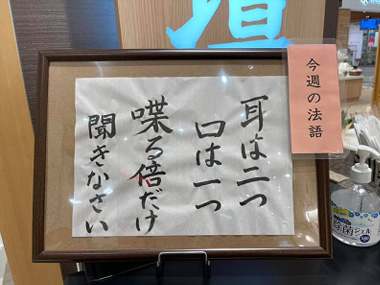 今週の法語
耳は二つ
口は一つ
喋る倍だけ
聞きなさい